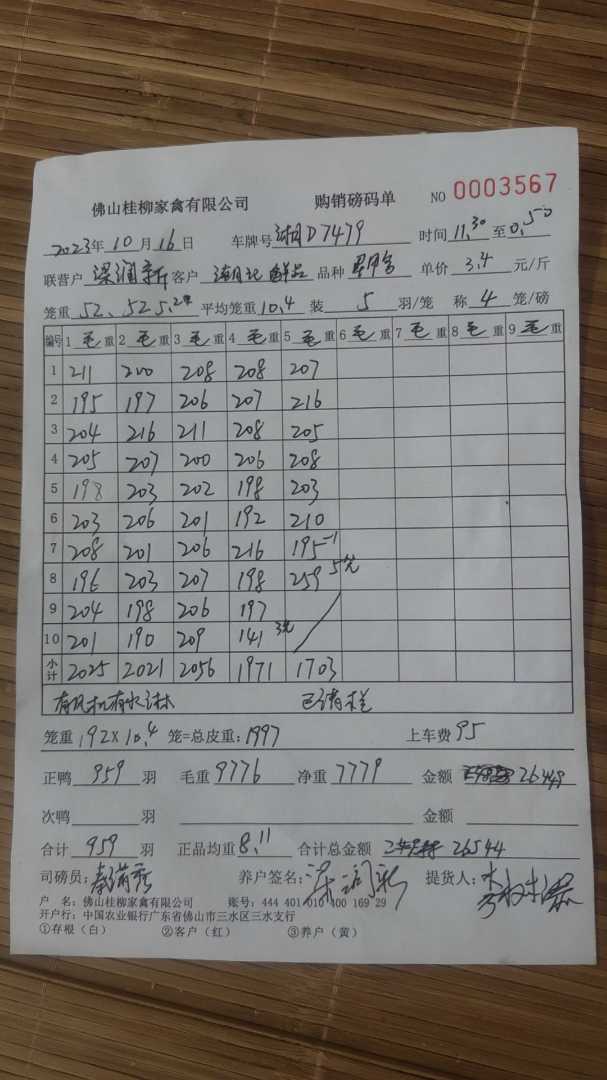 佛山桂柳家禽有限公司 购销磅码单 NO 0003567
2023年10月16日 车牌号 湘D7479 时间 11.30 至 0.50
联营户 梁润新 客户 湖北鲜品 品种 单价 3.4 元/斤
笼重 52、52 5.2# 平均笼重 10.4 装 5 羽/笼 称 4 笼/磅
编号 1 毛重 2 毛重 3 毛重 4 毛重 5 毛重 6 毛重 7 毛重 8 毛重 9 毛重
1 211 200 208 208 207
2 195 197 206 207 216
3 204 216 211 208 205
4 205 207 200 206 208
5 198 203 202 198 203
6 203 206 201 192 210
7 208 201 206 216 195-1
8 196 203 207 198 259 5元
9 204 198 206 197
10 201 190 209 141 3元
小计 2025 2021 2056 1971 1703
有风机有水淋 已清栏
笼重 192X10.4 笼=总皮重: 1997 上车费 95
正鸭 959 羽 毛重 9776 净重 7779 金额 26449
次鸭 羽 金额
合计 959 羽 正品均重 8.11 合计总金额 26544
司磅员: 秦满秀 养户签名: 梁润新 提货人:
户 名: 佛山桂柳家禽有限公司 账号: 444 401 010 400 169 29
开户行: 中国农业银行广东省佛山市三水区三水支行
①存根（白） ②客户（红） ③养户（黄）